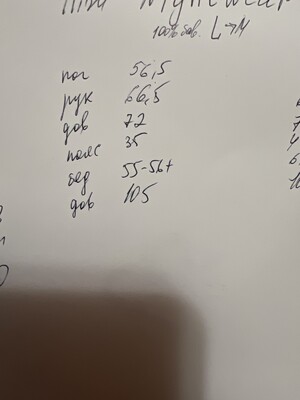 100% бав. L→M
пог 56,5
рук 66,5
дов 72
пояс 35
бед 55-56+
дов 105